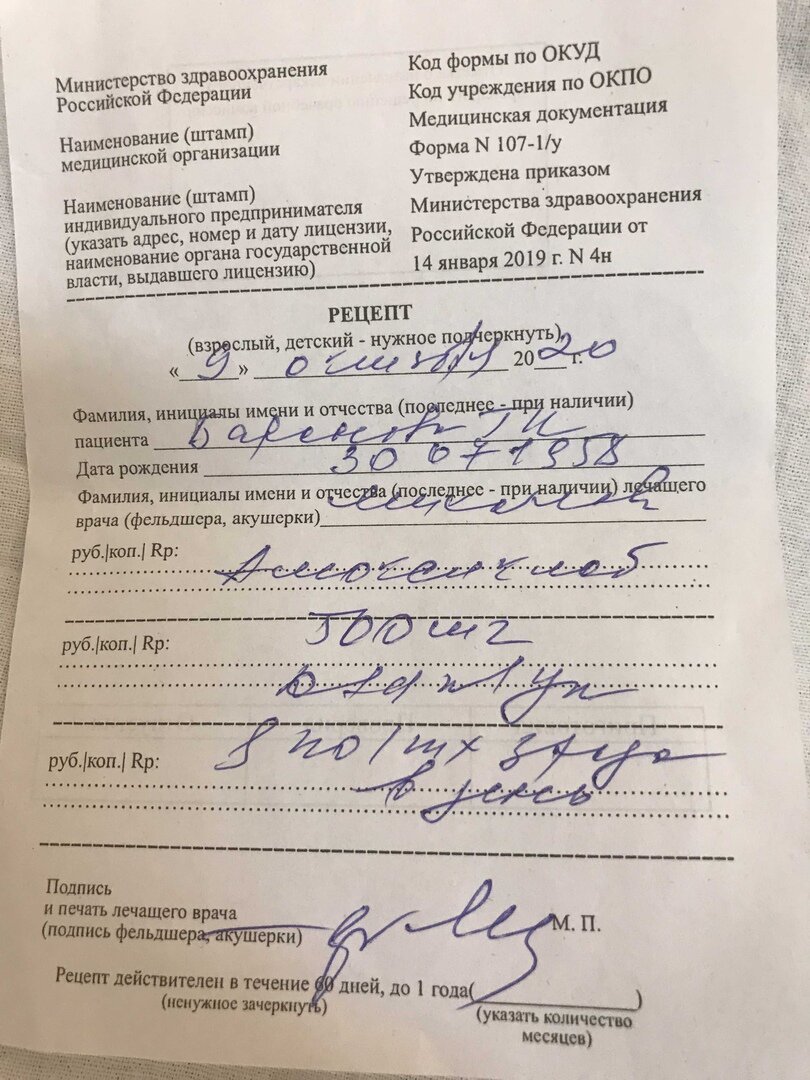 Министерство здравоохранения
Российской Федерации
Наименование (штамп)
медицинской организации
Наименование (штамп)
индивидуального предпринимателя
(указать адрес, номер и дату лицензии,
наименование органа государственной
власти, выдавшего лицензию)
Код формы по ОКУД
Код учреждения по ОКПО
Медицинская документация
Форма N 107-1/у
Утверждена приказом
Министерства здравоохранения
Российской Федерации от
14 января 2019 г. N 4н
РЕЦЕПТ
(взрослый, детский - нужное подчеркнуть)
«9» октября 2020 г.
Фамилия, инициалы имени и отчества (последнее - при наличии)
пациента
Дата рождения 30 07 1958
Фамилия, инициалы имени и отчества (последнее - при наличии) лечащего
врача (фельдшера, акушерки)
руб.|коп.| Rp: Амоксиклав
руб.|коп.| Rp: 500 мг
руб.|коп.| Rp: S по 1 т х 3 раза
в день
Подпись
и печать лечащего врача
(подпись фельдшера, акушерки)
М. П.
Рецепт действителен в течение 60 дней, до 1 года(
)
(ненужное зачеркнуть)
(указать количество
месяцев)